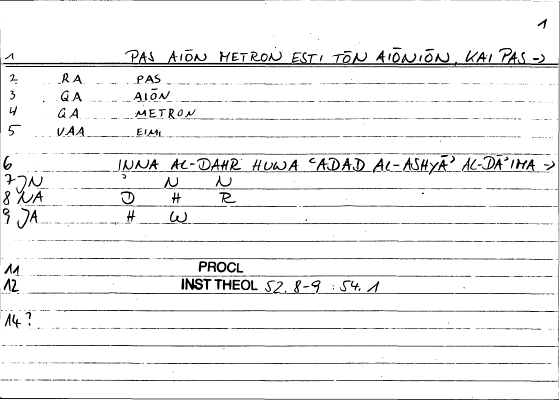 1
1 PAS AIŌN METRON ESTI TŌN AIŌNIŌN, KAI PAS →
2 RA PAS
3 QA AIŌN
4 QA METRON
5 VAA EIMI
6 INNA AL-DAHR HUWA ʿADAD AL-ASHYĀʾ AL-DĀʾIMA →
7 JN ʾ N N
8 NA D H R
9 JA H W
11 PROCL
12 INST THEOL 52.8-9 : 54.1
14 ?